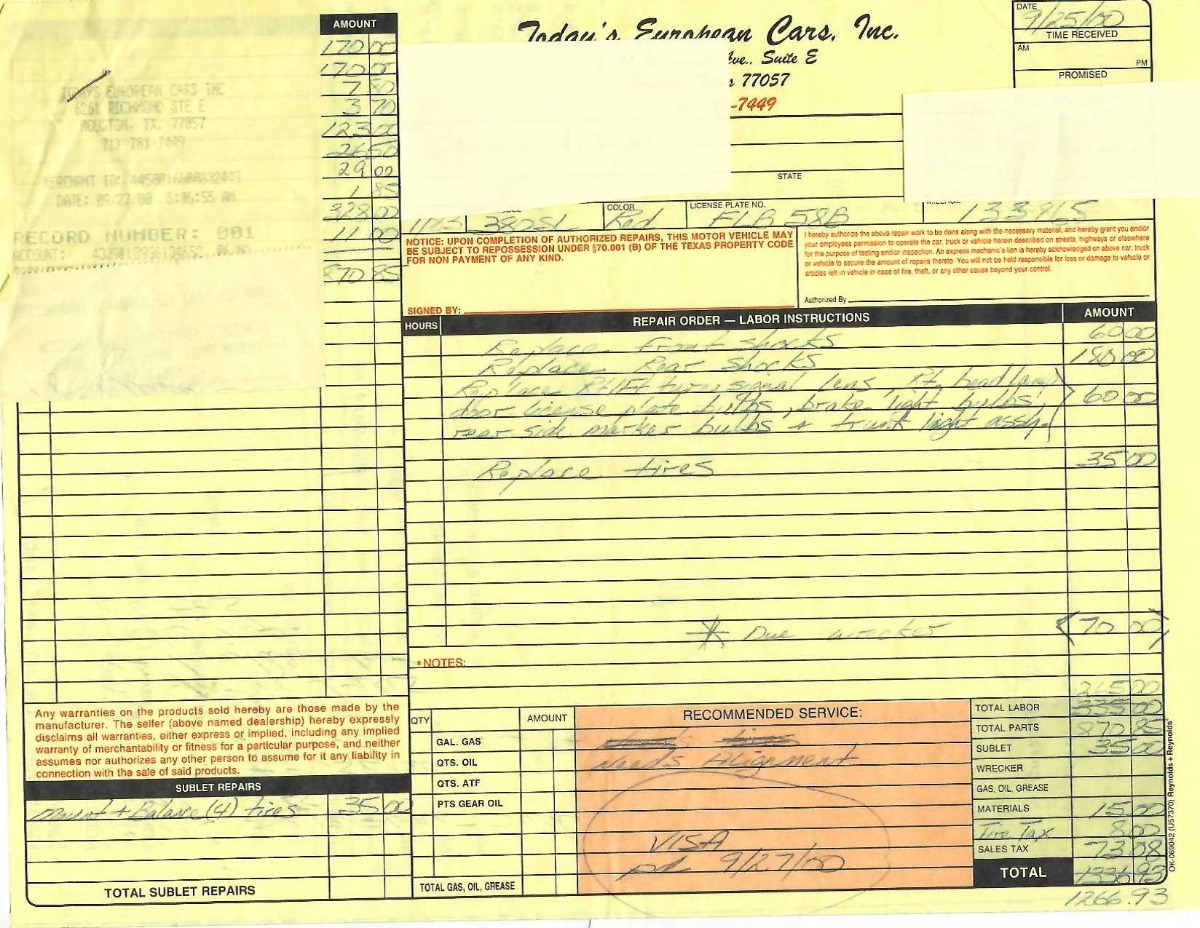 Today's European Cars, Inc.
ve., Suite E
77057
-7449
DATE
9/25/00
TIME RECEIVED
AM
PM
PROMISED
TODAYS EUROPEAN CARS INC
6261 RICHMOND STE E
HOUSTON, TX. 77057
713-781-7449
RECORD NUMBER: 001
AMOUNT
170 00
170 00
7 80
3 70
123 00
26 50
29 00
1 85
328 00
11 00
870 85
STATE
380SL
COLOR
Red
LICENSE PLATE NO.
FLB 58B
133965
NOTICE: UPON COMPLETION OF AUTHORIZED REPAIRS, THIS MOTOR VEHICLE MAY
BE SUBJECT TO REPOSSESSION UNDER §70.001 (B) OF THE TEXAS PROPERTY CODE
FOR NON PAYMENT OF ANY KIND.
SIGNED BY:
I hereby authorize the above repair work to be done along with the necessary material, and hereby grant you and/or
your employees permission to operate the car, truck or vehicle herein described on streets, highways or elsewhere
for the purpose of testing and/or inspection. An express mechanic's lien is hereby acknowledged on above car, truck
or vehicle to secure the amount of repairs thereto. You will not be held responsible for loss or damage to vehicle or
articles left in vehicle in case of fire, theft, or any other cause beyond your control.
Authorized By
HOURS REPAIR ORDER — LABOR INSTRUCTIONS AMOUNT
Replace Front shocks 60 00
Replace Rear shocks 180 00
Replace Rt/Lft turn signal lens, Rt. head lamp
door license plate bulbs, brake light bulbs, 60 00
rear side marker bulbs + trunk light assy.
Replace tires 35 00
* Due wrecker (70 00)
*NOTES:
Any warranties on the products sold hereby are those made by the
manufacturer. The seller (above named dealership) hereby expressly
disclaims all warranties, either express or implied, including any implied
warranty of merchantability or fitness for a particular purpose, and neither
assumes nor authorizes any other person to assume for it any liability in
connection with the sale of said products.
SUBLET REPAIRS
Mount + Balance (4) tires 35 00
TOTAL SUBLET REPAIRS
QTY AMOUNT
GAL. GAS
QTS. OIL
QTS. ATF
PTS GEAR OIL
TOTAL GAS, OIL, GREASE
RECOMMENDED SERVICE:
needs Alignment
VISA
pd 9/27/00
265 00
TOTAL LABOR 335 00
TOTAL PARTS 870 85
SUBLET 35 00
WRECKER
GAS, OIL, GREASE
MATERIALS 15 00
Tire Tax 8 00
SALES TAX 73 08
TOTAL 1336 93
1266.93
OK-069042 (U57370) Reynolds + Reynolds